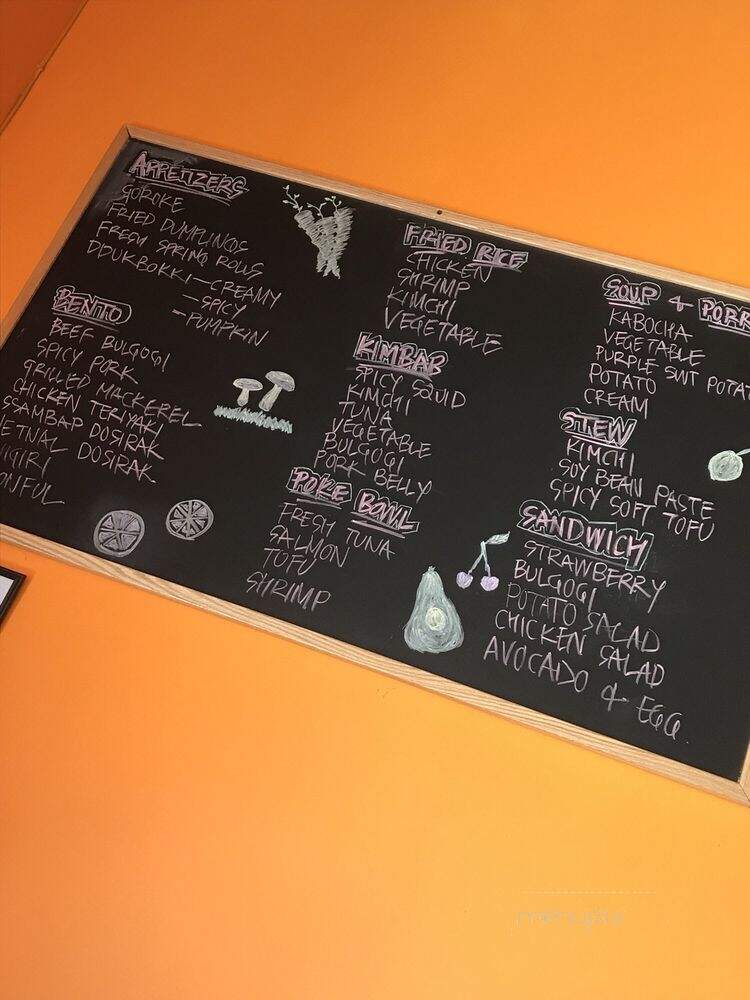 APPETIZERS
GOROKE
FRIED DUMPLINGS
FRESH SPRING ROLLS
DDUKBOKKI — CREAMY
— SPICY
— PUMPKIN
BENTO
BEEF BULGOGI
SPICY PORK
GRILLED MACKEREL
CHICKEN TERIYAKI
SSAMBAP DOSIRAK
ETNAL DOSIRAK
IGIRI
ONFUL
FRIED RICE
CHICKEN
SHRIMP
KIMCHI
VEGETABLE
KIMBAB
SPICY SQUID
KIMCHI
TUNA
VEGETABLE
BULGOGI
PORK BELLY
POKE BOWL
FRESH TUNA
SALMON
TOFU
SHRIMP
SOUP & PORR
KABOCHA
VEGETABLE
PURPLE SWT POTAT
POTATO
CREAM
STEW
KIMCHI
SOY BEAN PASTE
SPICY SOFT TOFU
SANDWICH
STRAWBERRY
BULGOGI
POTATO SALAD
CHICKEN SALAD
AVOCADO & EGG